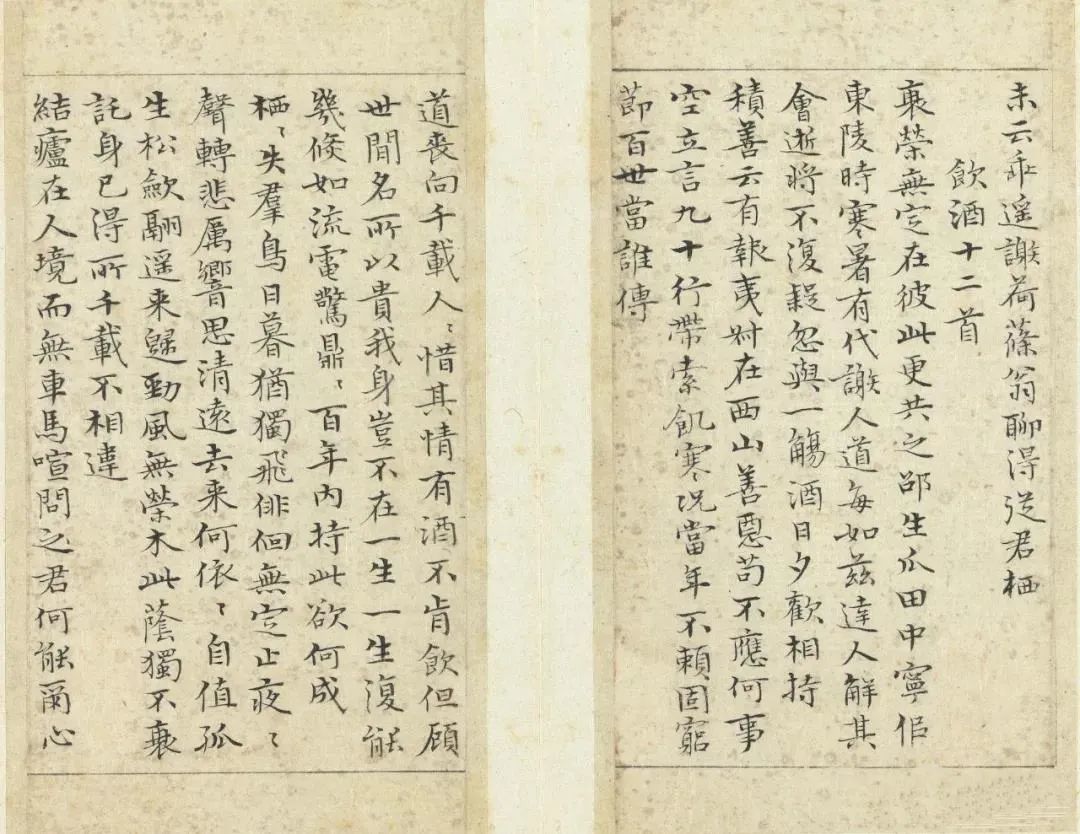 未云乖遥謝荷蓧翁聊得從君栖
飲酒十二首
衰榮無定在彼此更共之邵生瓜田中寧佀
東陵時寒暑有代謝人道每如茲達人解其
會逝將不復疑忽與一觴酒日夕歡相持
積善云有報夷叔在西山善惡苟不應何事
空立言九十行帶索飢寒況當年不賴固窮
節百世當誰傳
道喪向千載人〻惜其情有酒不肯飲但顧
世間名所以貴我身豈不在一生一生復能
幾倏如流電驚鼎〻百年內持此欲何成
栖〻失羣鳥日暮猶獨飛徘徊無定止夜〻
聲轉悲厲響思清遠去来何依〻自值孤
生松歛翮遥来歸勁風無榮木此蔭獨不衰
託身已得所千載不相違
結廬在人境而無車馬喧問之君何能爾心